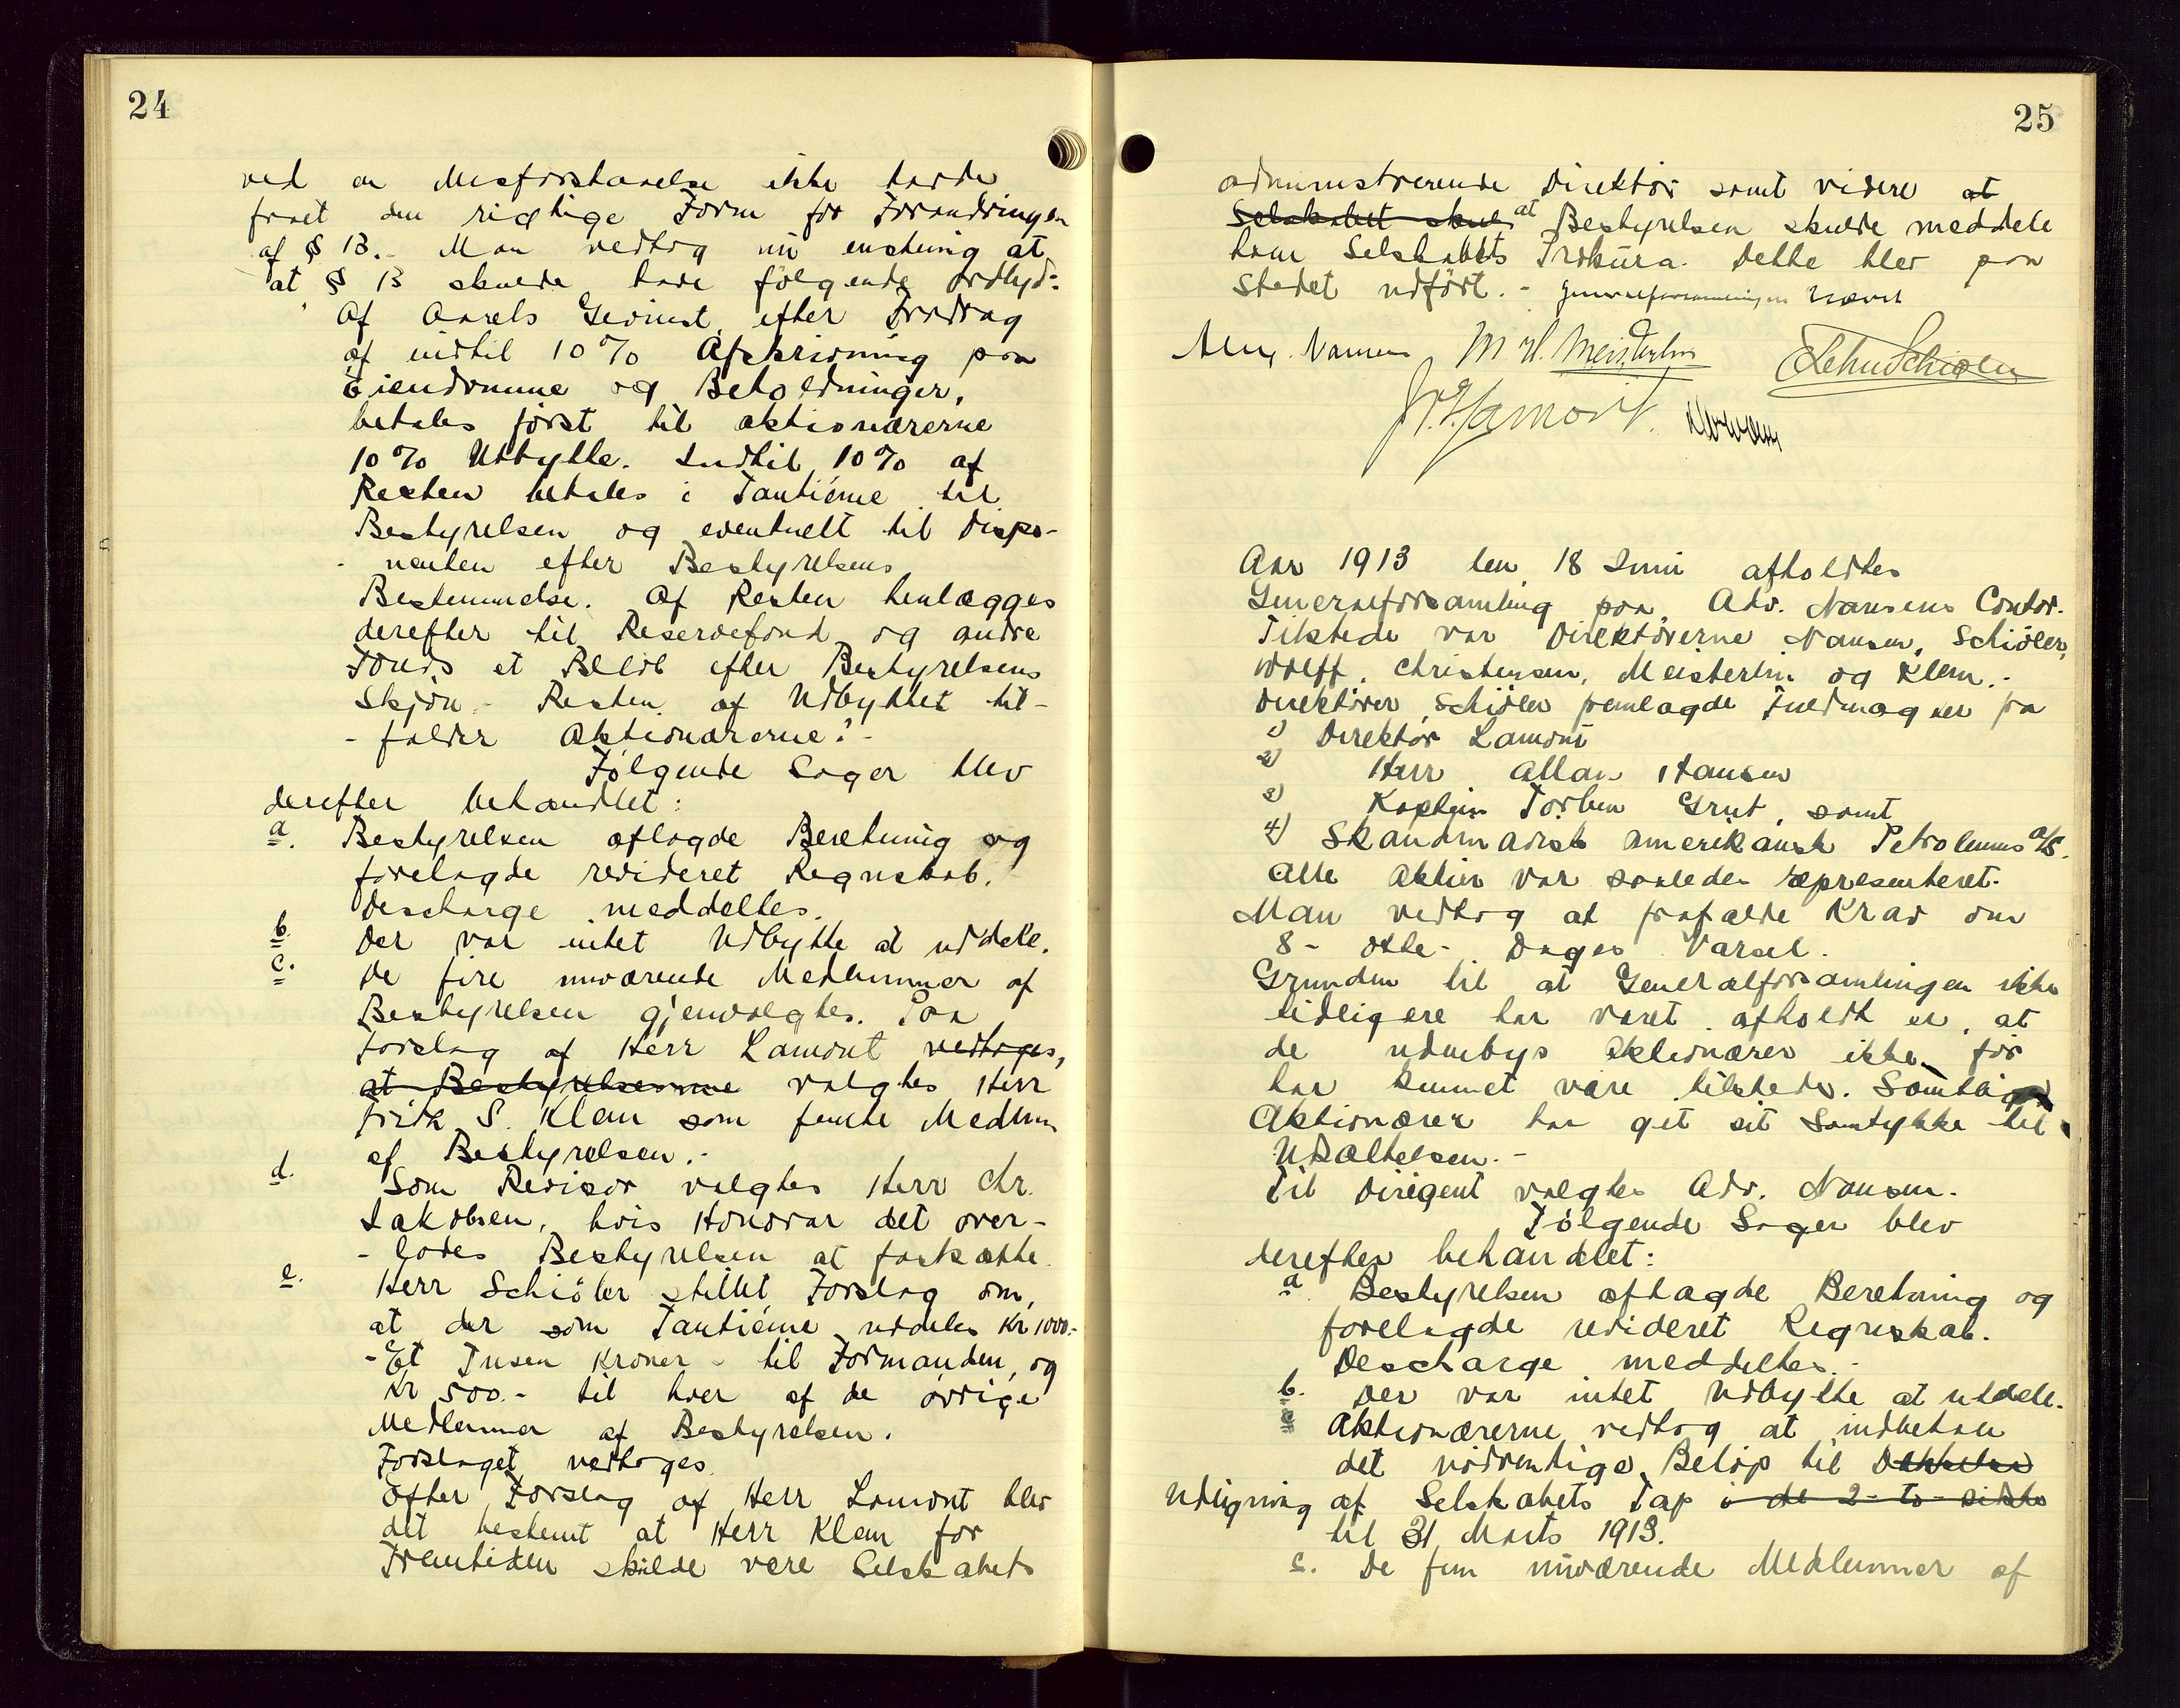 24
ved en Misforstaaelse ikke havde
faaet den rigtige Form for Forandringen
af § 13. - Man vedtog nu enstemig at
at § 13 skulde have følgende Ordlyd:
" Af Aarets Gevinst, efter Fradrag
af indtil 10% Afskrivning paa
Eiendomme og Beholdninger,
betales først til aktionærerne
10% Udbytte. Indtil 10% af
Resten betales i Tantiéme til
Bestyrelsen og eventuelt til Dispo-
- nenten efter Bestyrelsens
Bestemmelse. Af Resten henlægges
derefter til Reservefond og andre
Fonds et Beløb efter Bestyrelsens
Skjøn. - Resten af Udbyttet til-
- falder Aktionærerne". -
Følgende Sager blev
derefter behandlet:
a. Bestyrelsen aflagde Beretning og
forelagde revideret Regnskab.
Descharge meddeltes.
b. Der var intet Udbytte at uddele.
c. De fire nuværende Medlemmer af
Bestyrelsen gjenvalgtes. Paa
Forslag af Herr Lamont vedtoges,
at Bestyrelsen valgtes Herr
Fritz S. Klem som femte Medlem
af Bestyrelsen. -
d. Som Revisor valgtes Herr Chr.
Jakobsen, hvis Honorar det over-
- lodes Bestyrelsen at fastsætte.
e. Herr Schiöler stillet Forslag om,
at der som Tantiéme uddeles Kr 1000.-
- Et Tusen Kroner - til Formanden, og
Kr 500.- til hver af de øvrige
Medlemmer af Bestyrelsen.
Forslaget vedtoges.
Efter Forslag af Herr Lamont blev
det bestemt at Herr Klem for
Fremtiden skulde være Selskabets
25
administrerende Direktør samt videre at
Selskabet skul at Bestyrelsen skulde meddele
ham Selskabets Prokura. Dette blev paa
Stedet udført. - Generalforsamlingen hævet
Nansen M H. Meisterlin Lehn Schiöler
Lamont.
Aar 1913 den 18 Juni afholdtes
Generalforsamling paa Adv. Nansens Contor.
Tilstede var Direktørerne Nansen, Schiöler,
Wolff, Christensen, Meisterlin og Klem. -
Direktører Schiöler fremlagde Fuldmagter fra
1) Direktør Lamont
2) Herr Allan Hansen
3) Kaptein Torben Grut, samt
4) Skandinavisk amerikansk Petroleums A/S.
Alle Aktier var saaledes representeret.
Man vedtog at frafalde Krav om
8 - otte - Dages Varsel.
Grunden til at Generalforsamlingen ikke
tidligere har været afholdt er, at
de udenbys Aktionærer ikke før
har kunnet være tilstede. Samtlige
Aktionærer har get sit Samtykke til
Udsættelsen. -
Til Dirigent valgtes Adv. Nansen.
Følgende Sager blev
derefter behandlet:
a. Bestyrelsen aflagde Beretning og
forelagde revideret Regnskab.
Descharge meddeltes. -
b. Der var intet Udbytte at uddele.
c Aktionærerne vedtog at indbetale
det nødvendige Beløp til Dækkelse
Udligning af Selskabets Tap i de 2 - to - sidste
til 31 Marts 1913.
c. De fem nuværende Medlemmer af